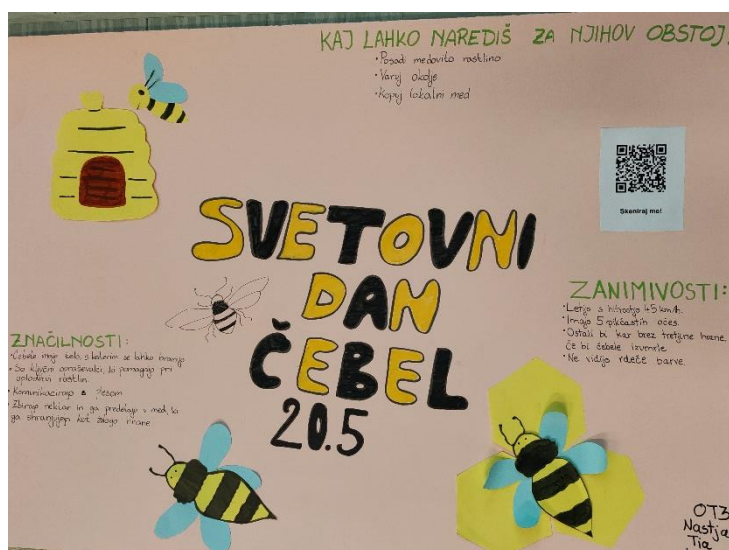 KAJ LAHKO NAREDIŠ ZA NJIHOV OBSTOJ
• Posadi medovito rastlino
• Varuj okolje
• Kupuj lokalni med
Skeniraj me!
SVETOVNI
DAN
ČEBEL
20.5
ZANIMIVOSTI:
• Letijo s hitrostjo 45 km/h.
• Imajo 5 pikčastih očes.
• Ostali bi kar brez tretjine hrane,
če bi čebele izumrle.
• Ne vidijo rdeče barve.
ZNAČILNOSTI:
• Čebele imajo želo, s katerim se lahko branijo
• So ključni opraševalci, ki pomagajo pri
oploditvi rastlin.
• Komunicirajo s plesom
• Zbirajo nektar in ga predelajo v med, ki
ga shranjujejo kot zalogo hrane
OT3
Nastja
Tia